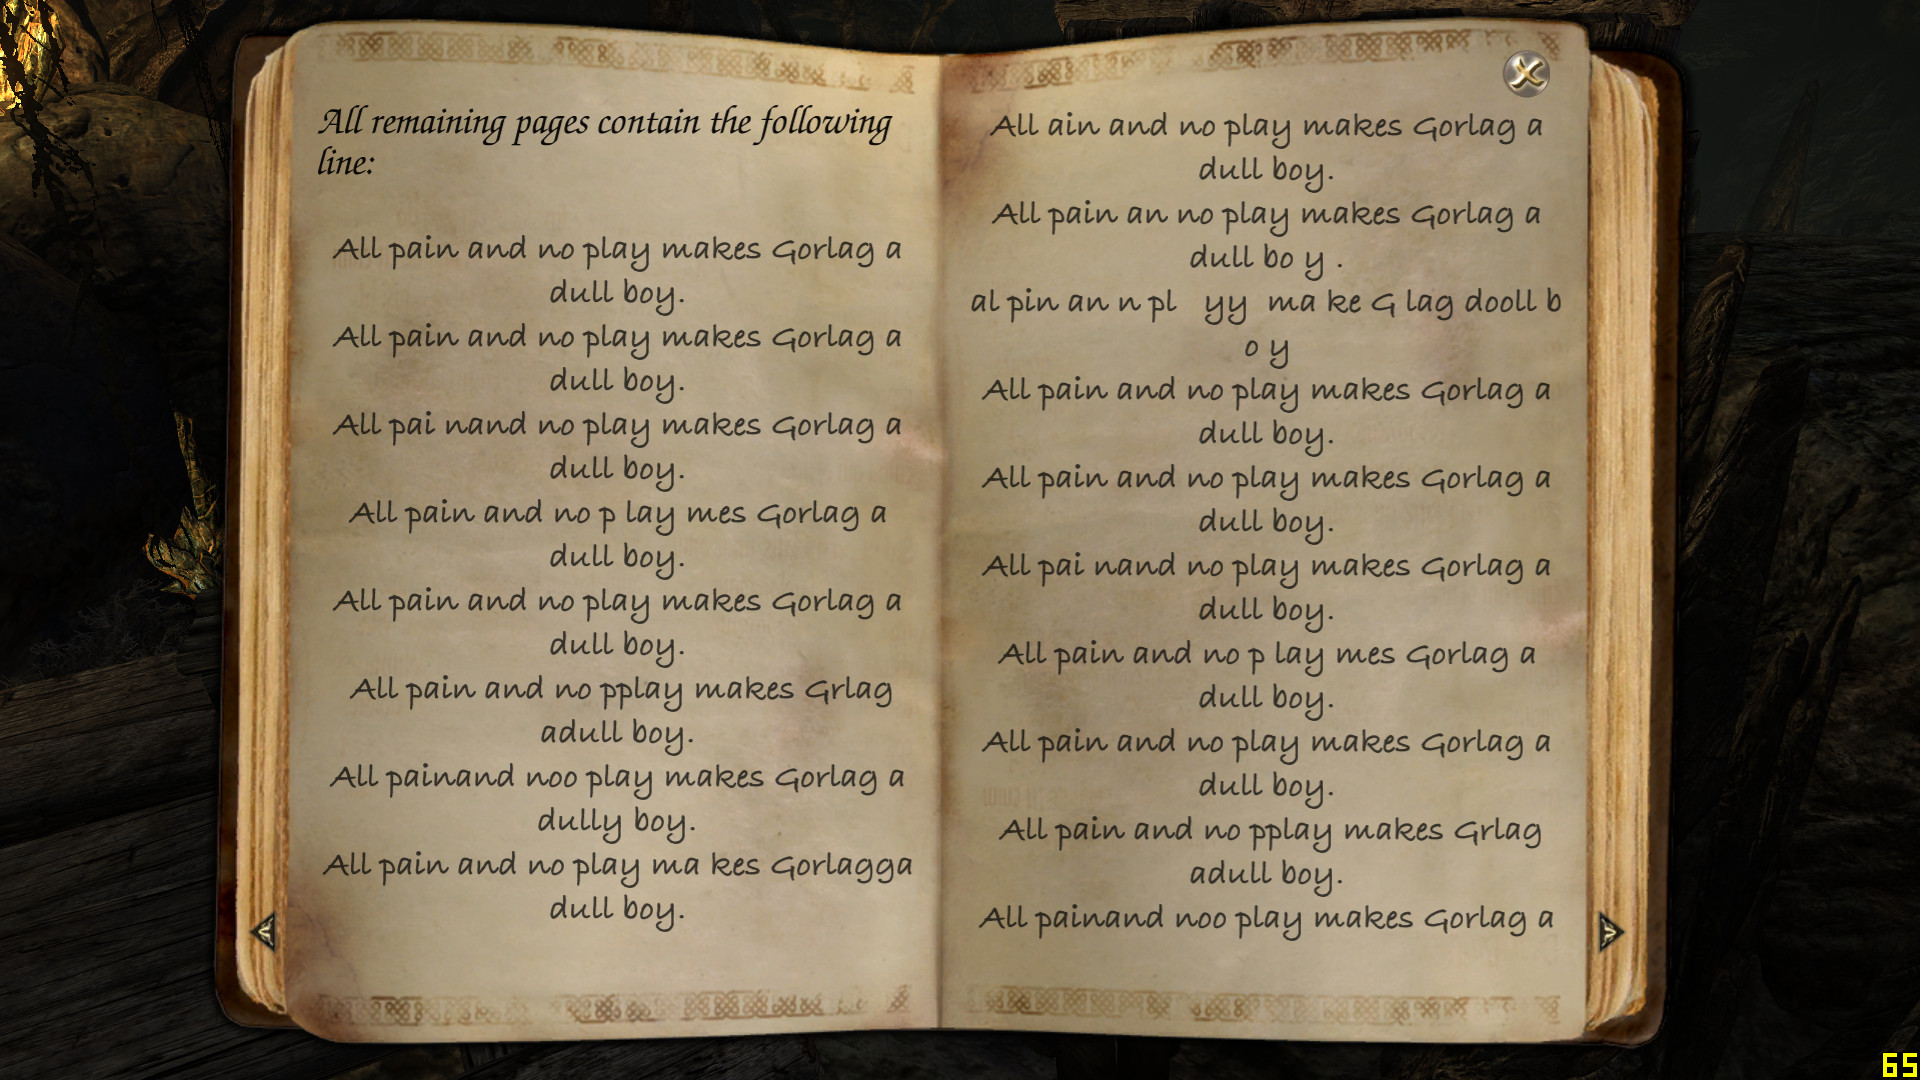 All remaining pages contain the following
line:
All pain and no play makes Gorlag a
dull boy.
All pain and no play makes Gorlag a
dull boy.
All pai nand no play makes Gorlag a
dull boy.
All pain and no p lay mes Gorlag a
dull boy.
All pain and no play makes Gorlag a
dull boy.
All pain and no pplay makes Grlag
adull boy.
All painand noo play makes Gorlag a
dully boy.
All pain and no play ma kes Gorlagga
dull boy.
All ain and no play makes Gorlag a
dull boy.
All pain an no play makes Gorlag a
dull bo y .
al pin an n pl   yy  ma ke G lag dooll b
o y
All pain and no play makes Gorlag a
dull boy.
All pain and no play makes Gorlag a
dull boy.
All pai nand no play makes Gorlag a
dull boy.
All pain and no p lay mes Gorlag a
dull boy.
All pain and no play makes Gorlag a
dull boy.
All pain and no pplay makes Grlag
adull boy.
All painand noo play makes Gorlag a
65